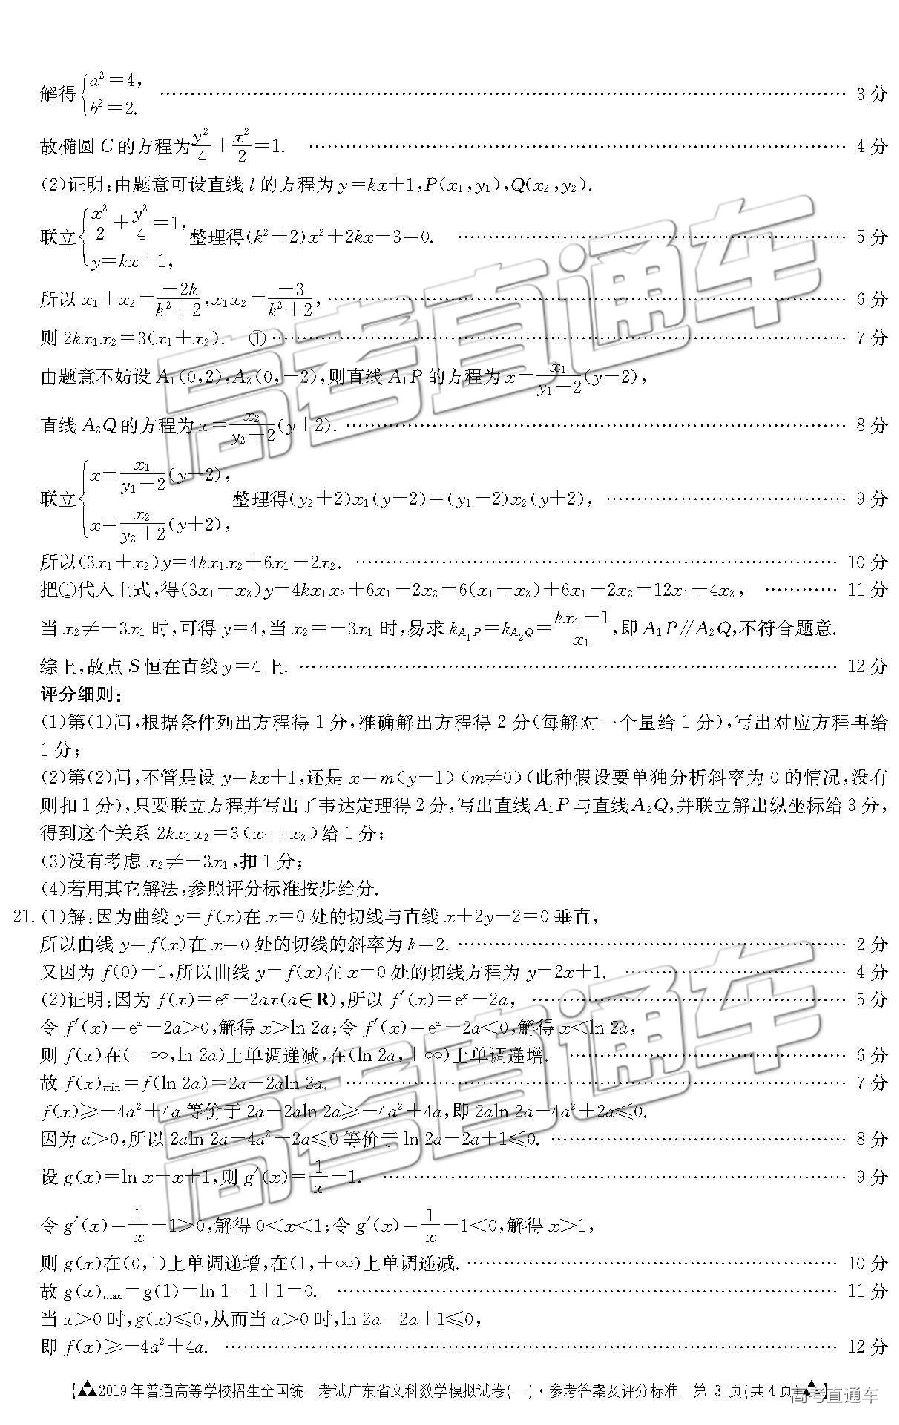 解得{a²=4, b²=2. …… 3分
故椭圆C的方程为y²/4+x²/2=1. …… 4分
(2)证明:由题意可设直线l的方程为y=kx+1,P(x₁,y₁),Q(x₂,y₂).
联立{x²/2+y²/4=1, y=kx+1, 整理得(k²+2)x²+2kx-3=0. …… 5分
所以x₁+x₂=-2k/(k²+2),x₁x₂=-3/(k²+2), …… 6分
则2kx₁x₂=3(x₁+x₂). ① …… 7分
由题意不妨设A₁(0,2),A₂(0,-2),则直线A₁P的方程为x=x₁/(y₁-2)(y-2),
直线A₂Q的方程为x=x₂/(y₂+2)(y+2). …… 8分
联立{x=x₁/(y₁-2)(y-2), x=x₂/(y₂+2)(y+2), 整理得(y₂+2)x₁(y-2)=(y₁-2)x₂(y+2), …… 9分
所以(3x₁+x₂)y=4kx₁x₂+6x₁-2x₂. …… 10分
把①代入上式,得(3x₁+x₂)y=4kx₁x₂+6x₁-2x₂=6(x₁+x₂)+6x₁-2x₂=12x₁+4x₂, …… 11分
当x₂≠-3x₁时,可得y=4,当x₂=-3x₁时,易求k_{A₁P}=k_{A₂Q}=(kx₁-1)/x₁,即A₁P∥A₂Q,不符合题意.
综上,故点S恒在直线y=4上. …… 12分
评分细则:
(1)第(1)问,根据条件列出方程得1分,准确解出方程得2分(每解对一个量给1分),写出对应方程再给
1分;
(2)第(2)问,不管是设y=kx+1,还是x=m(y-1)(m≠0)(此种假设要单独分析斜率为0的情况,没有
则扣1分),只要联立方程并写出了韦达定理得2分,写出直线A₁P与直线A₂Q,并联立解出纵坐标给3分,
得到这个关系2kx₁x₂=3(x₁+x₂)给1分;
(3)没有考虑x₂≠-3x₁,扣1分;
(4)若用其它解法,参照评分标准按步给分.
21.(1)解:因为曲线y=f(x)在x=0处的切线与直线x+2y-2=0垂直,
所以曲线y=f(x)在x=0处的切线的斜率为k=2. …… 2分
又因为f(0)=1,所以曲线y=f(x)在x=0处的切线方程为y=2x+1. …… 4分
(2)证明:因为f(x)=eˣ-2ax(a∈R),所以f′(x)=eˣ-2a, …… 5分
令f′(x)=eˣ-2a>0,解得x>ln 2a;令f′(x)=eˣ-2a<0,解得x<ln 2a,
则f(x)在(-∞,ln 2a)上单调递减,在(ln 2a,+∞)上单调递增. …… 6分
故f(x)min=f(ln 2a)=2a-2aln 2a. …… 7分
f(x)≥-4a²+4a等价于2a-2aln 2a≥-4a²+4a,即2aln 2a-4a²+2a≤0.
因为a>0,所以2aln 2a-4a²+2a≤0等价于ln 2a-2a+1≤0. …… 8分
设g(x)=ln x-x+1,则g′(x)=1/x-1. …… 9分
令g′(x)=1/x-1>0,解得0<x<1;令g′(x)=1/x-1<0,解得x>1,
则g(x)在(0,1)上单调递增,在(1,+∞)上单调递减. …… 10分
故g(x)max=g(1)=ln 1-1+1=0. …… 11分
当x>0时,g(x)≤0,从而当a>0时,ln 2a-2a+1≤0,
即f(x)≥-4a²+4a. …… 12分
【2019年普通高等学校招生全国统一考试广东省文科数学模拟试卷(一)·参考答案及评分标准 第3页(共4页)】
高考直通车
高考直通车
高考直通车